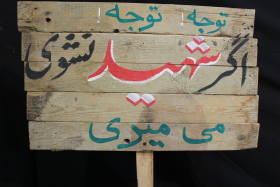 توجه! توجه!
اگر شهید نشوی
می میری